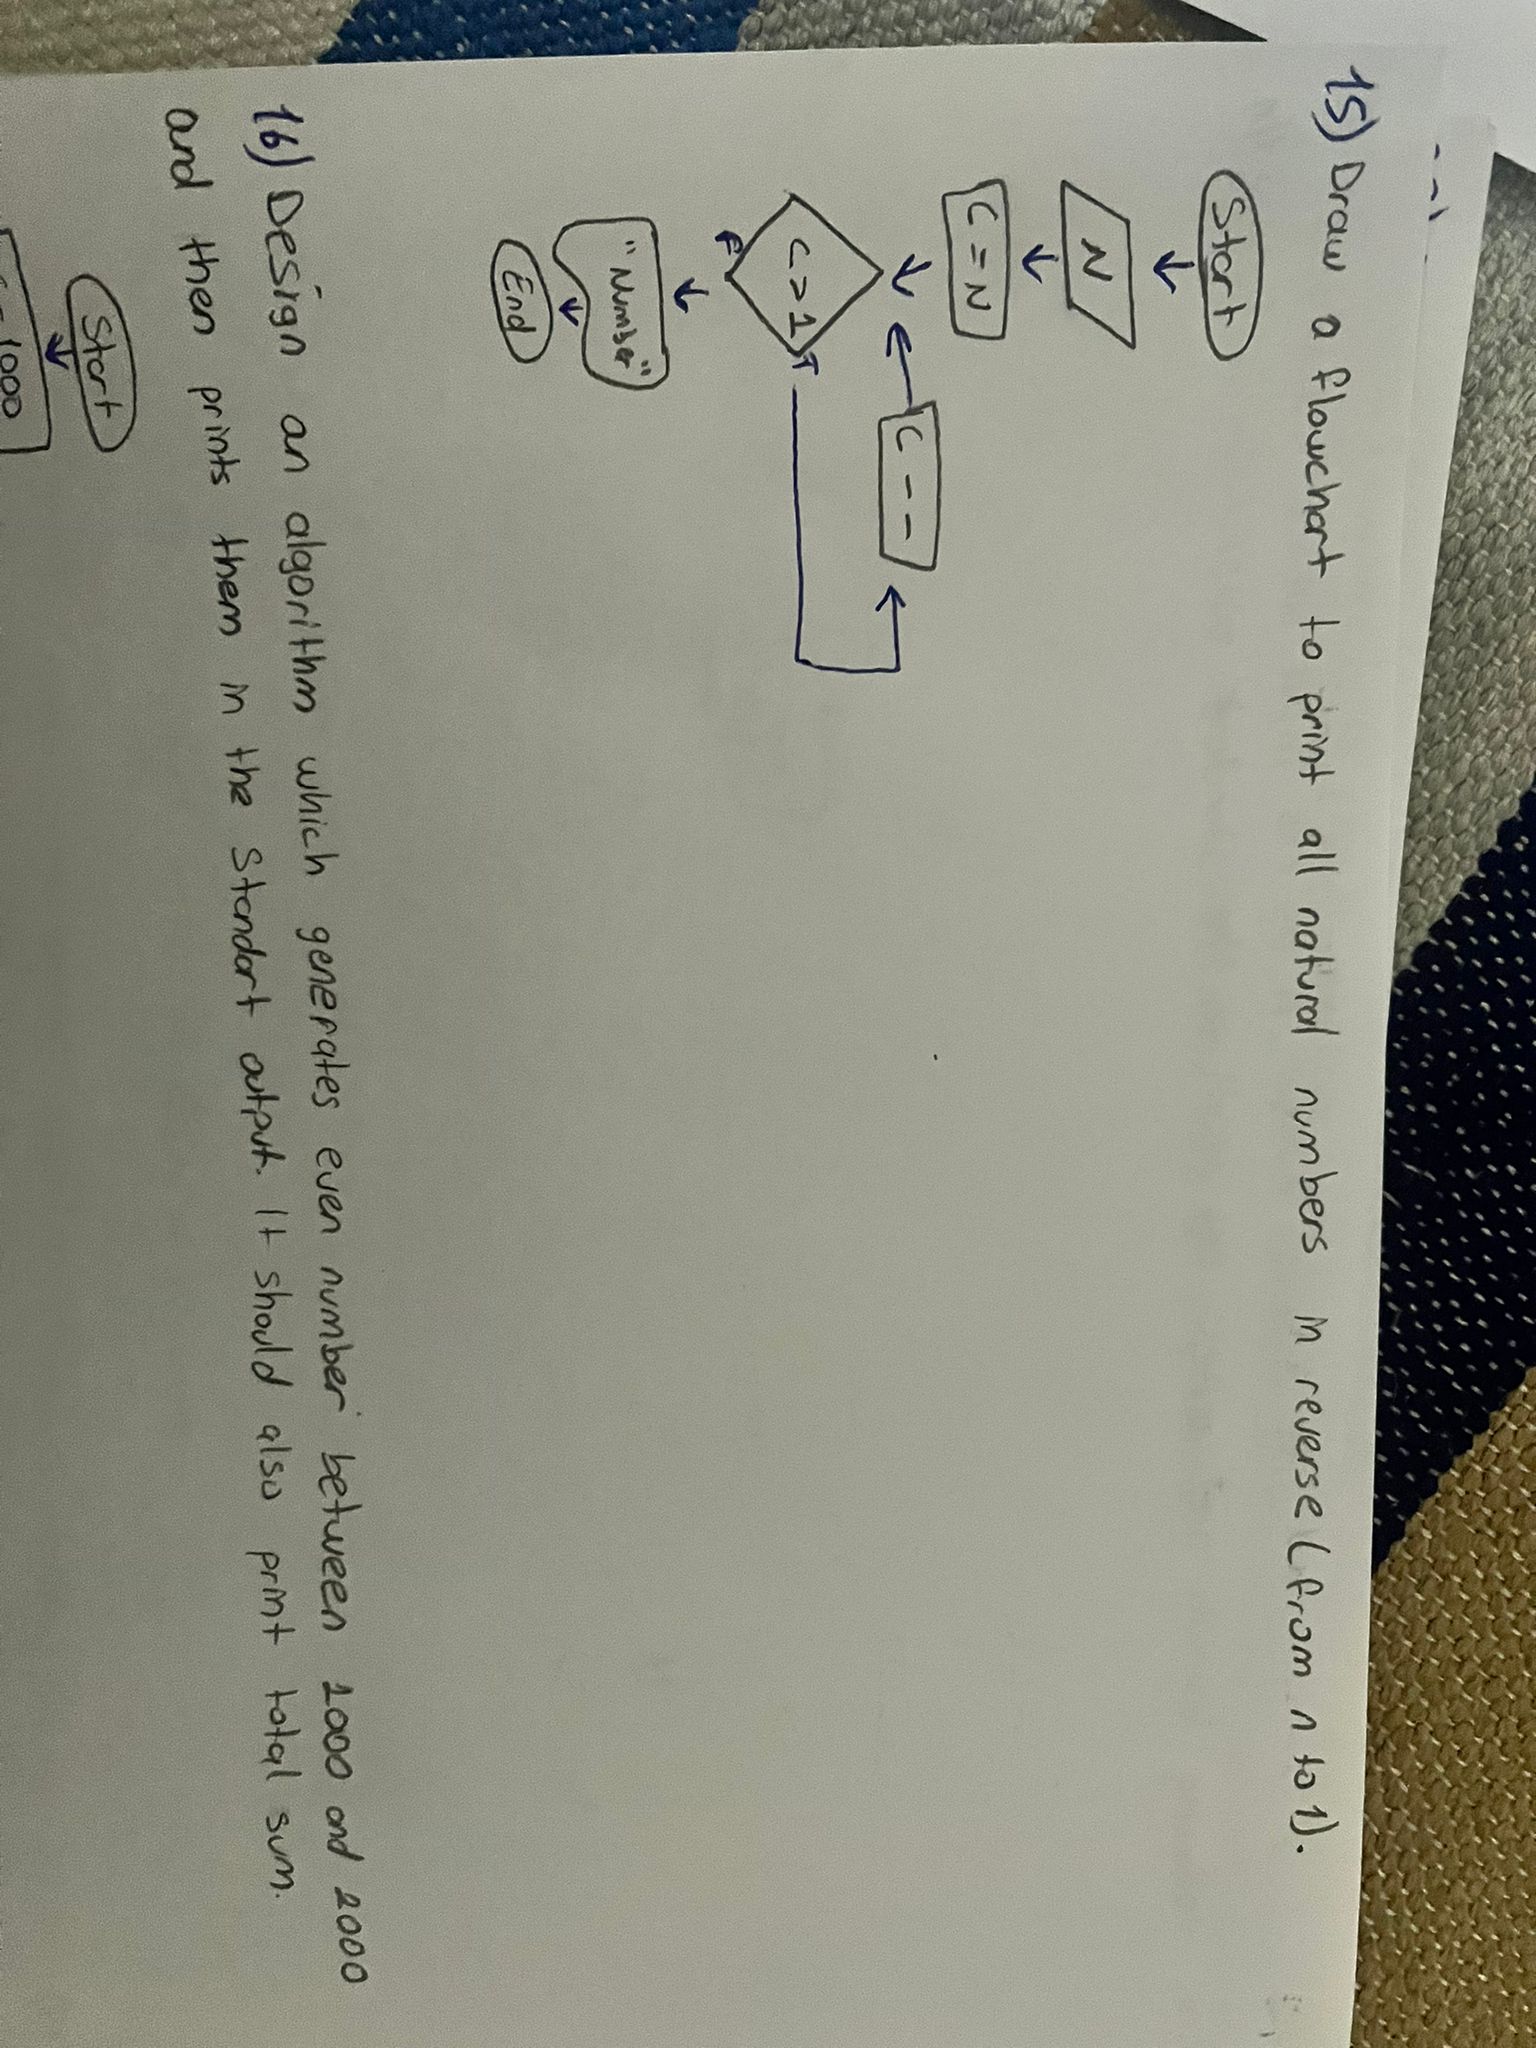 15) Draw a flowchart to print all natural numbers in reverse (from n to 1).
Start
N
C = N
C --
C > 1
T
F
"Number"
End
16) Design an algorithm which generates even number between 1000 and 2000
and then prints them in the standart output. It should also print total sum.
Start
1000